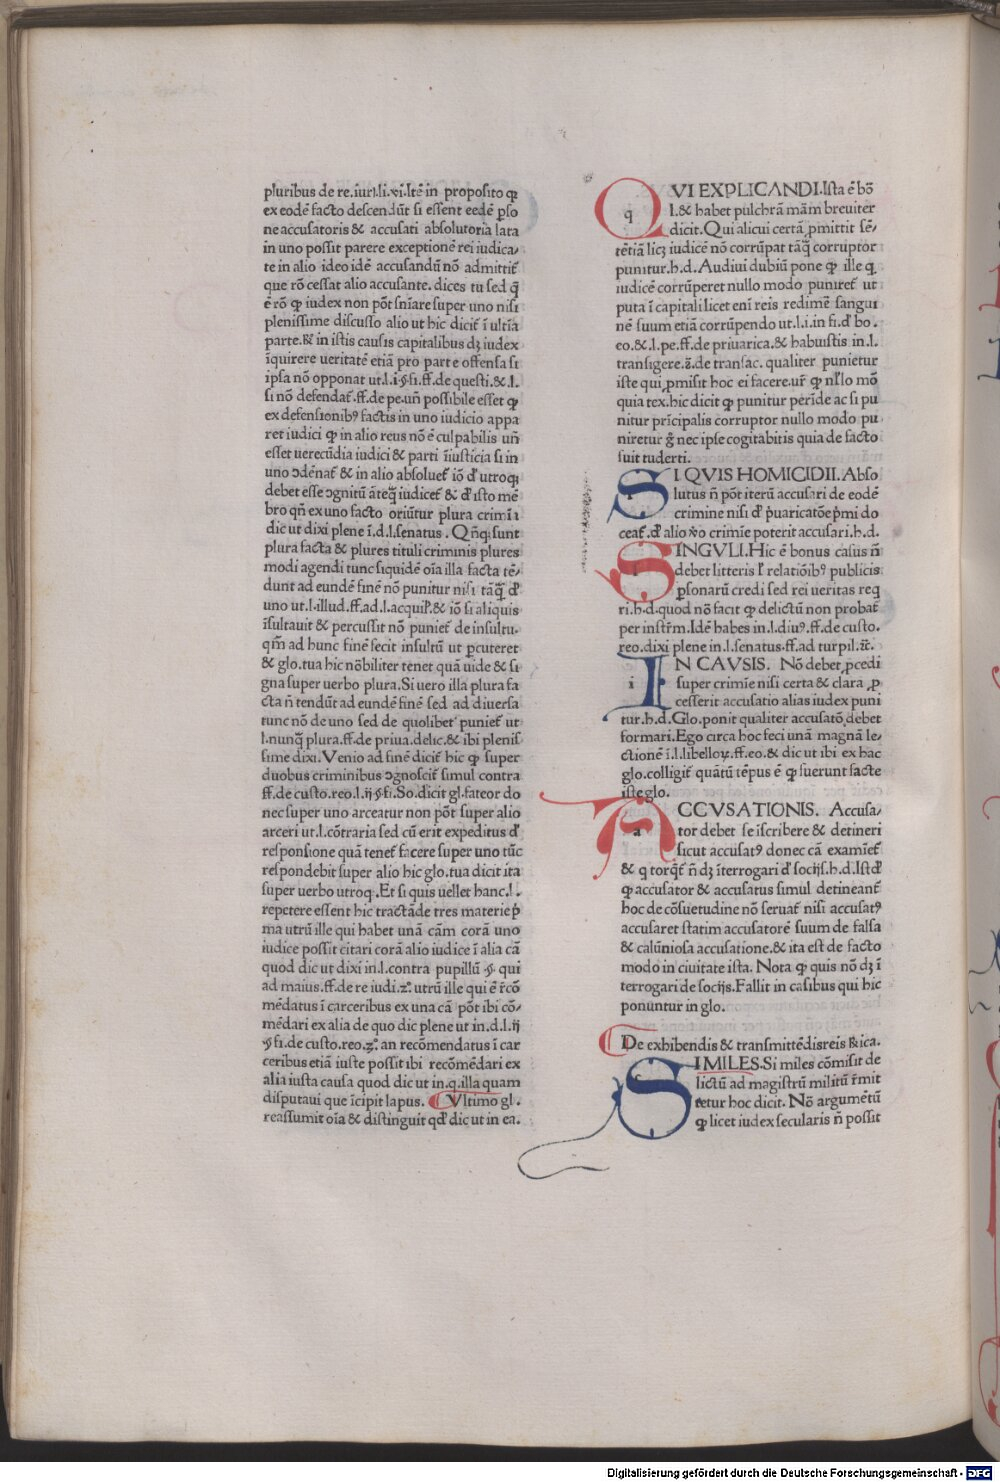 pluribus de re. iur. l. li. xi. Itē in proposito ꝙ
ex eodē facto descendūt si essent eedē ꝑso
ne accusatoris & accusati absolutoria lata
in uno possit parere exceptionē rei iudica/
te in alio ideo idē accusandū nō admittit̄
que rō cessat alio accusante. dices tu sed q̄
ē rō ꝙ iudex non pōt snīare super uno nisi
plenissime discusso alio ut hic dicit̄ ī ultīa
parte. & in istis causis capitalibus dꝫ iudex
īquirere ueritatē etiā pro parte offensa si
ipsa nō opponat ut. l. i. §. si. ff. de questi. & l.
si nō defendat̄. ff. de pe. uñ possibile esset ꝙ
ex defensionibꝰ factis in uno iudicio appa
ret iudici ꝙ in alio reus nō ē culpabilis uñ
esset uerecūdia iudici & parti īiusticia si in
uno ɔdēnat̄ & in alio absoluet̄ iō d' utroqꝫ
debet esse ɔgnitū āteq̄ iudicet̄ & d' isto mē
bro qñ ex uno facto oriūtur plura crimīa
dic ut dixi plene ī. d. l. senatus. Qñqꝫ sunt
plura facta & plures tituli criminis plures
modi agendi tunc siquidē oīa illa facta tē/
dunt ad eundē finē nō punitur nisi tāq̄ d'
uno ut. l. illud. ff. ad. l. acquil'. & iō si aliquis
īsultauit & percussit nō puniet̄ de insultu.
qm̄ ad hunc finē fecit insultū ut ꝑcuteret
& glo. tua hic nōbiliter tenet quā uide & si
gna super uerbo plura. Si uero illa plura fa
cta ñ tendūt ad eundē finē sed ad diuersa
tunc nō de uno sed de quolibet puniet̄ ut
l. nunq̄ plura. ff. de priua. delic. & ibi plenis
sime dixi. Venio ad finē dicit̄ hic ꝙ super
duobus criminibus ɔgnoscit̄ simul contra
ff. de custo. reo. l. ij. §. fi. So. dicit gl. fateor do
nec super uno arceatur non pōt super alio
arceri ut. l. cōtraria sed cū erit expeditus d'
responsione quā tenet̄ facere super uno tūc
respondebit super alio hic glo. tua dicit ita
super uerbo utroqꝫ. Et si quis uellet hanc. l.
repetere essent hic tractāde tres materie p̄
ma utrū ille qui habet unā cām corā uno
iudice possit citari corā alio iudice ī alia cā
quod dic ut dixi in. l. contra pupillū. §. qui
ad maius. ff. de re iudi. 2°. utrū ille qui ē r̄cō
mēdatus ī carceribus ex una cā pōt ibi cō/
mēdari ex alia de quo dic plene ut in. d. l. ij
§. fi. de custo. reo. 3°. an recōmendatus ī car
ceribus etiā iuste possit ibi recōmēdari ex
alia iusta causa quod dic ut in. q. illa quam
disputaui que īcipit lapus. Vltimo gl.
reassumit oīa & distinguit qd' dic ut in ea.
QVI EXPLICANDI. Ista ē bō
l. & habet pulchrā mām breuiter
dicit. Qui alicui certā ꝓmittit sē/
tētiā licꝫ iudicē nō corrūpat tāq̄ corruptor
punitur. h. d. Audiui dubiū pone ꝙ ille q
iudicē corrūperet nullo modo puniret̄ ut
puta ī capitali licet enī reis redimē sangui
nē suum etiā corrūpendo ut. l. i. in fi. d' bo.
eo. & l. pe. ff. de priuarica. & habuistis in. l.
transigere. 2. de transac. qualiter punietur
iste qui ꝓmisit hoc ei facere. ur̄ ꝙ nl'lo mō
quia tex. hic dicit ꝙ punitur perīde ac si pu
nitur prīcipalis corruptor nullo modo pu
niretur ḡ nec ipse cogitabitis quia de facto
fuit tuderti.
SI QVIS HOMICIDII. Abso
lutus ñ pōt iterū accusari de eodē
crimine nisi d' p̄uaricatōe p̄mi do
ceat̄. d' alio v̊o crimīe poterit accusari. h. d.
SINGVLI. Hic ē bonus casus ñ
debet litteris l' relatiōibꝰ publicis
ꝑsonarū credi sed rei ueritas req
ri. h. d. quod nō facit ꝙ delictū non probat̄
per instr̄m. Idē habes in. l. diuꝰ. ff. de custo.
reo. dixi plene in. l. senatus. ff. ad turpil. īc.
IN CAVSIS. Nō debet ꝓcedi
super crimīe nisi certa & clara ꝓ
cesserit accusatio alias iudex puni
tur. h. d. Glo. ponit qualiter accusatō debet
formari. Ego circa hoc feci unā magnā le/
ctionē ī. l. libelloꝝ. ff. eo. & dic ut ibi ex hac
glo. colligit̄ quātū tēpus ē ꝙ fuerunt facte
iste glo.
ACCVSATIONIS. Accusa/
tor debet se īscribere & detineri
sicut accusatꝰ donec cā examīet̄
& q torq̄t̄ ñ dꝫ īterrogari d' socijs. h. d. Ist d'
ꝙ accusator & accusatus simul detineant̄
hoc de cōsuetudine nō seruat̄ nisi accusatꝰ
accusaret statim accusatorē suum de falsa
& calūniosa accusatione. & ita est de facto
modo in ciuitate ista. Nota ꝙ quis nō dꝫ ī
terrogari de socijs. Fallit in casibus qui hic
ponuntur in glo.
De exhibendis & transmittēdis reis R̄ica.
SI MILES. Si miles cōmisit de
lictū ad magistrū militū r̄mit
tetur hoc dicit. Nō argumētū
ꝙ licet iudex secularis ñ possit
Digitalisierung gefördert durch die Deutsche Forschungsgemeinschaft - DFG